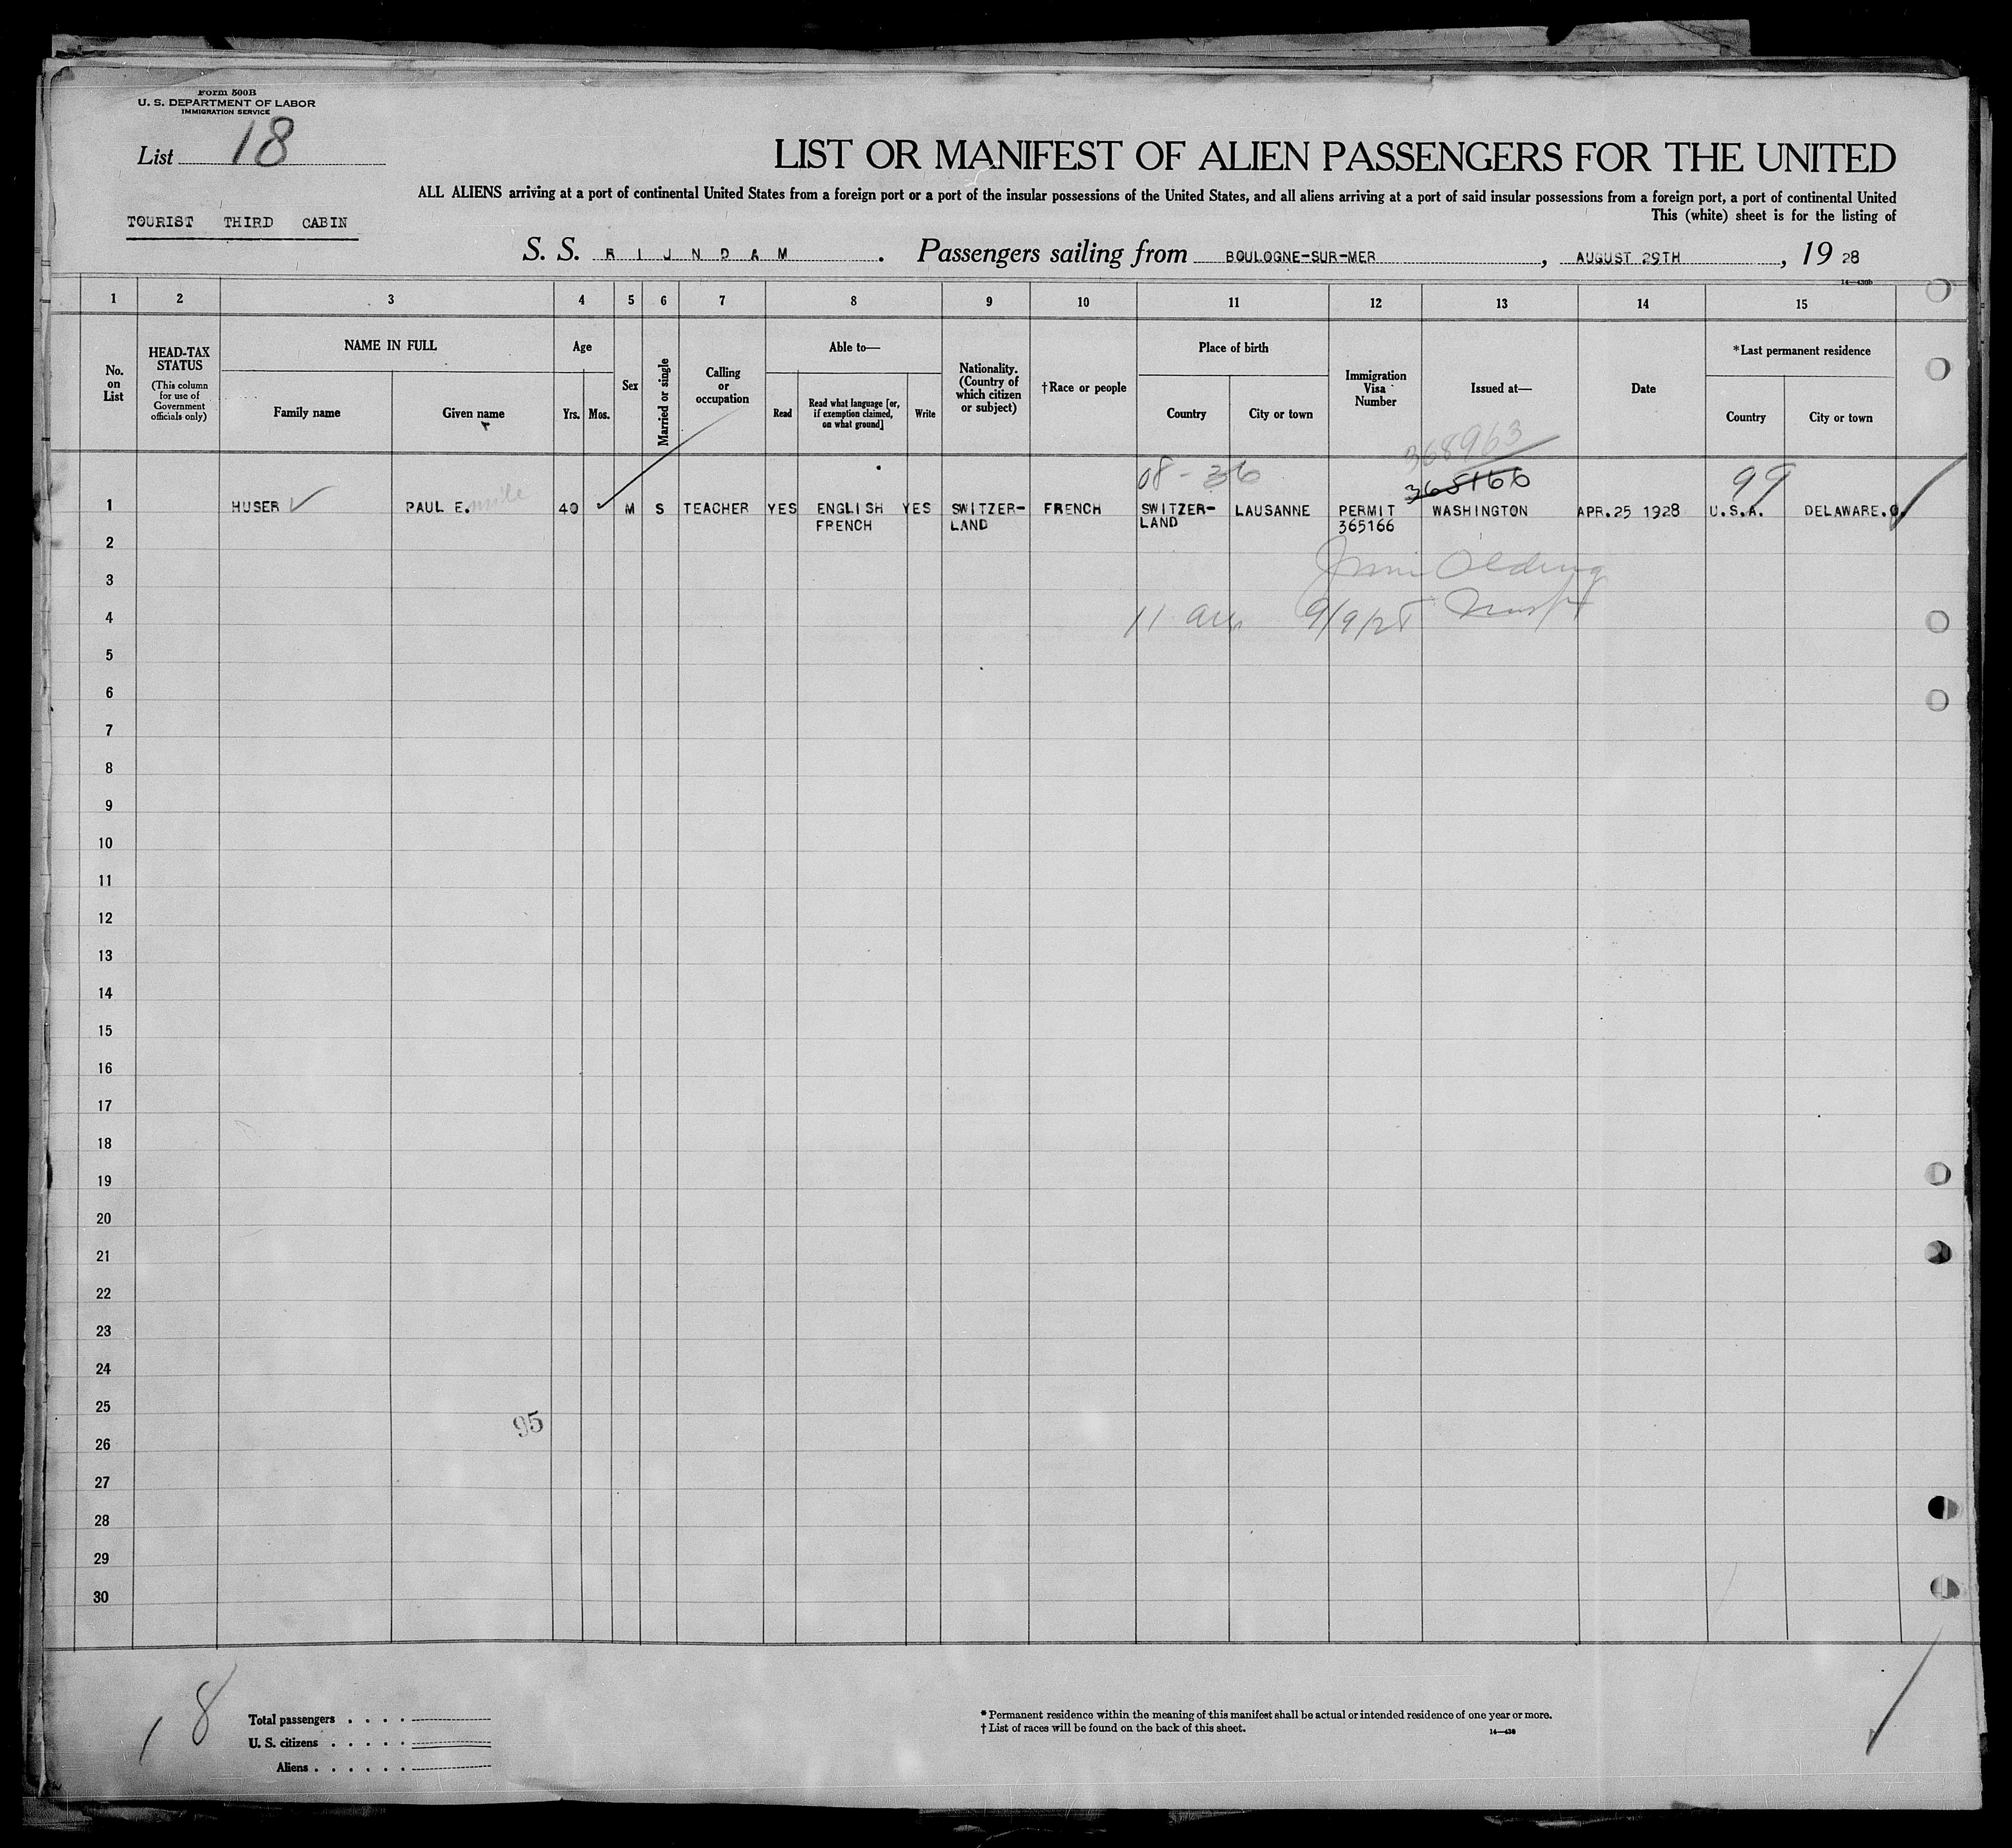 Form 500B
U. S. DEPARTMENT OF LABOR
IMMIGRATION SERVICE
List 18
LIST OR MANIFEST OF ALIEN PASSENGERS FOR THE UNITED
ALL ALIENS arriving at a port of continental United States from a foreign port or a port of the insular possessions of the United States, and all aliens arriving at a port of said insular possessions from a foreign port, a port of continental United
This (white) sheet is for the listing of
TOURIST THIRD CABIN
S. S. RIJNDAM. Passengers sailing from BOULOGNE-SUR-MER, AUGUST 29TH, 19 28
14—430b
1 2 3 4 5 6 7 8 9 10 11 12 13 14 15
No. on List
HEAD-TAX STATUS
(This column for use of Government officials only)
NAME IN FULL
Family name
Given name
Age
Yrs. Mos.
Sex
Married or single
Calling or occupation
Able to—
Read
Read what language [or, if exemption claimed, on what ground]
Write
Nationality. (Country of which citizen or subject)
†Race or people
Place of birth
Country
City or town
Immigration Visa Number
Issued at—
Date
*Last permanent residence
Country
City or town
368963
08-36 365166 99
1 HUSER PAUL E. 40 M S TEACHER YES ENGLISH YES SWITZER- FRENCH SWITZER- LAUSANNE PERMIT WASHINGTON APR.25 1928 U.S.A. DELAWARE.O.
FRENCH LAND LAND 365166
2
3
4 11 9/9/28
5
6
7
8
9
10
11
12
13
14
15
16
17
18
19
20
21
22
23
24
25
95
26
27
28
29
30
18
Total passengers
U. S. citizens
Aliens
* Permanent residence within the meaning of this manifest shall be actual or intended residence of one year or more.
† List of races will be found on the back of this sheet.
14—430